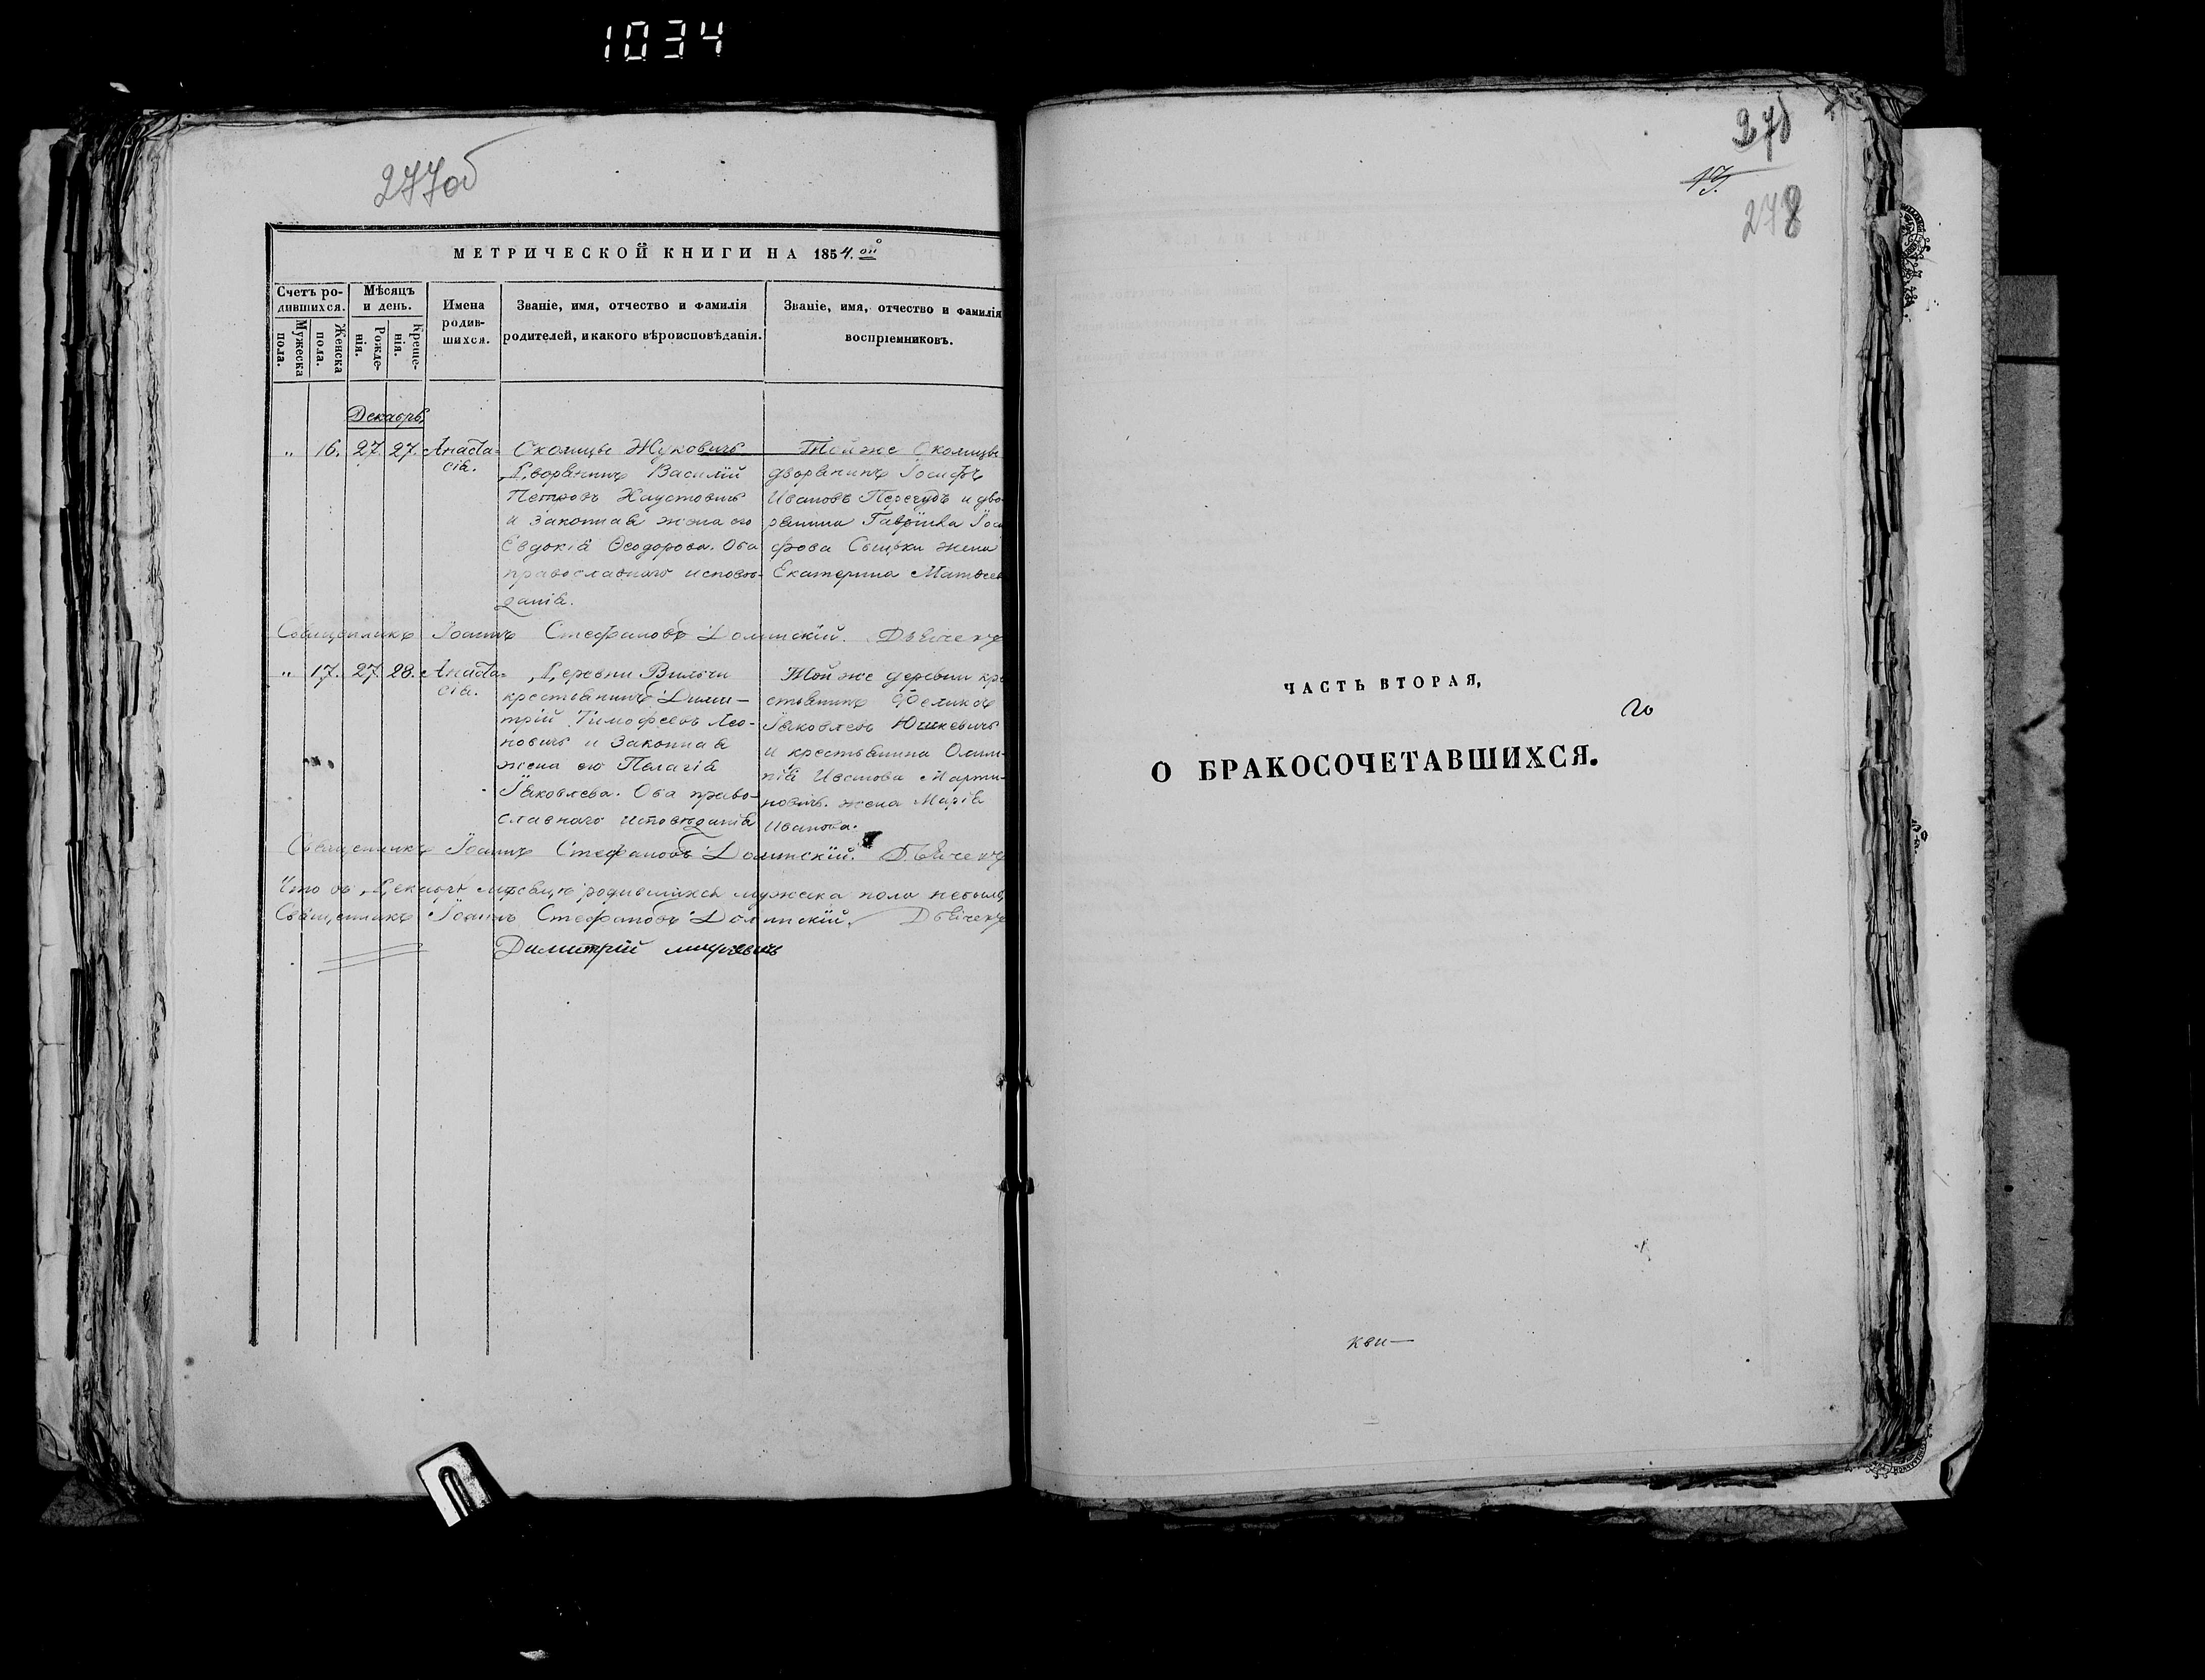 1034
277об
МЕТРИЧЕСКОЙ КНИГИ НА 1854.ой
Счетъ родившихся.
Мужеска пола.
Женска пола.
Мѣсяцъ и день.
Рожденія.
Крещенія.
Имена родившихся.
Званіе, имя, отчество и фамилія
родителей, и какого вѣроисповѣданія.
Званіе, имя, отчество и фамилія
воспріемниковъ.
Декабрь
" 16. 27. 27. Анаста=
сія.
Околицы Жуковичъ
Дворянинъ Василій
Петровъ Хаустовичъ
и законная жена его
Евдокія Ѳеодорова. Оба
православнаго исповѣ-
данія.
Тойже Околицы
дворянинъ Іосифъ
Ивановъ Пересудъ и дво-
рянина Гавріила Іоси
фова жена
Екатерина Матвеев
Священникъ Іоаннъ Стефановъ Долинскій.
" 17. 27. 28. Анаста=
сія.
Деревни Вильчи
крестьянинъ Дими-
трій Тимофеевъ Лео-
новичъ и Законная
жена его Пелагія
Іаковлева. Оба право-
славнаго исповѣданія
Той же деревни кре
стьянинъ Феликсъ
Іаковлевъ Юшкевичъ
и крестьянина Олим-
пія Иванова Марти-
новича жена Марія
Иванова.
Священникъ Іоаннъ Стефановъ Долинскій.
Что въ Декабрѣ мѣсяцѣ родившихся мужеска пола небыло
Священникъ Іоаннъ Стефановъ Долинскій.
Димитрій
278
19.
278
ЧАСТЬ ВТОРАЯ,
го
О БРАКОСОЧЕТАВШИХСЯ.
кви—